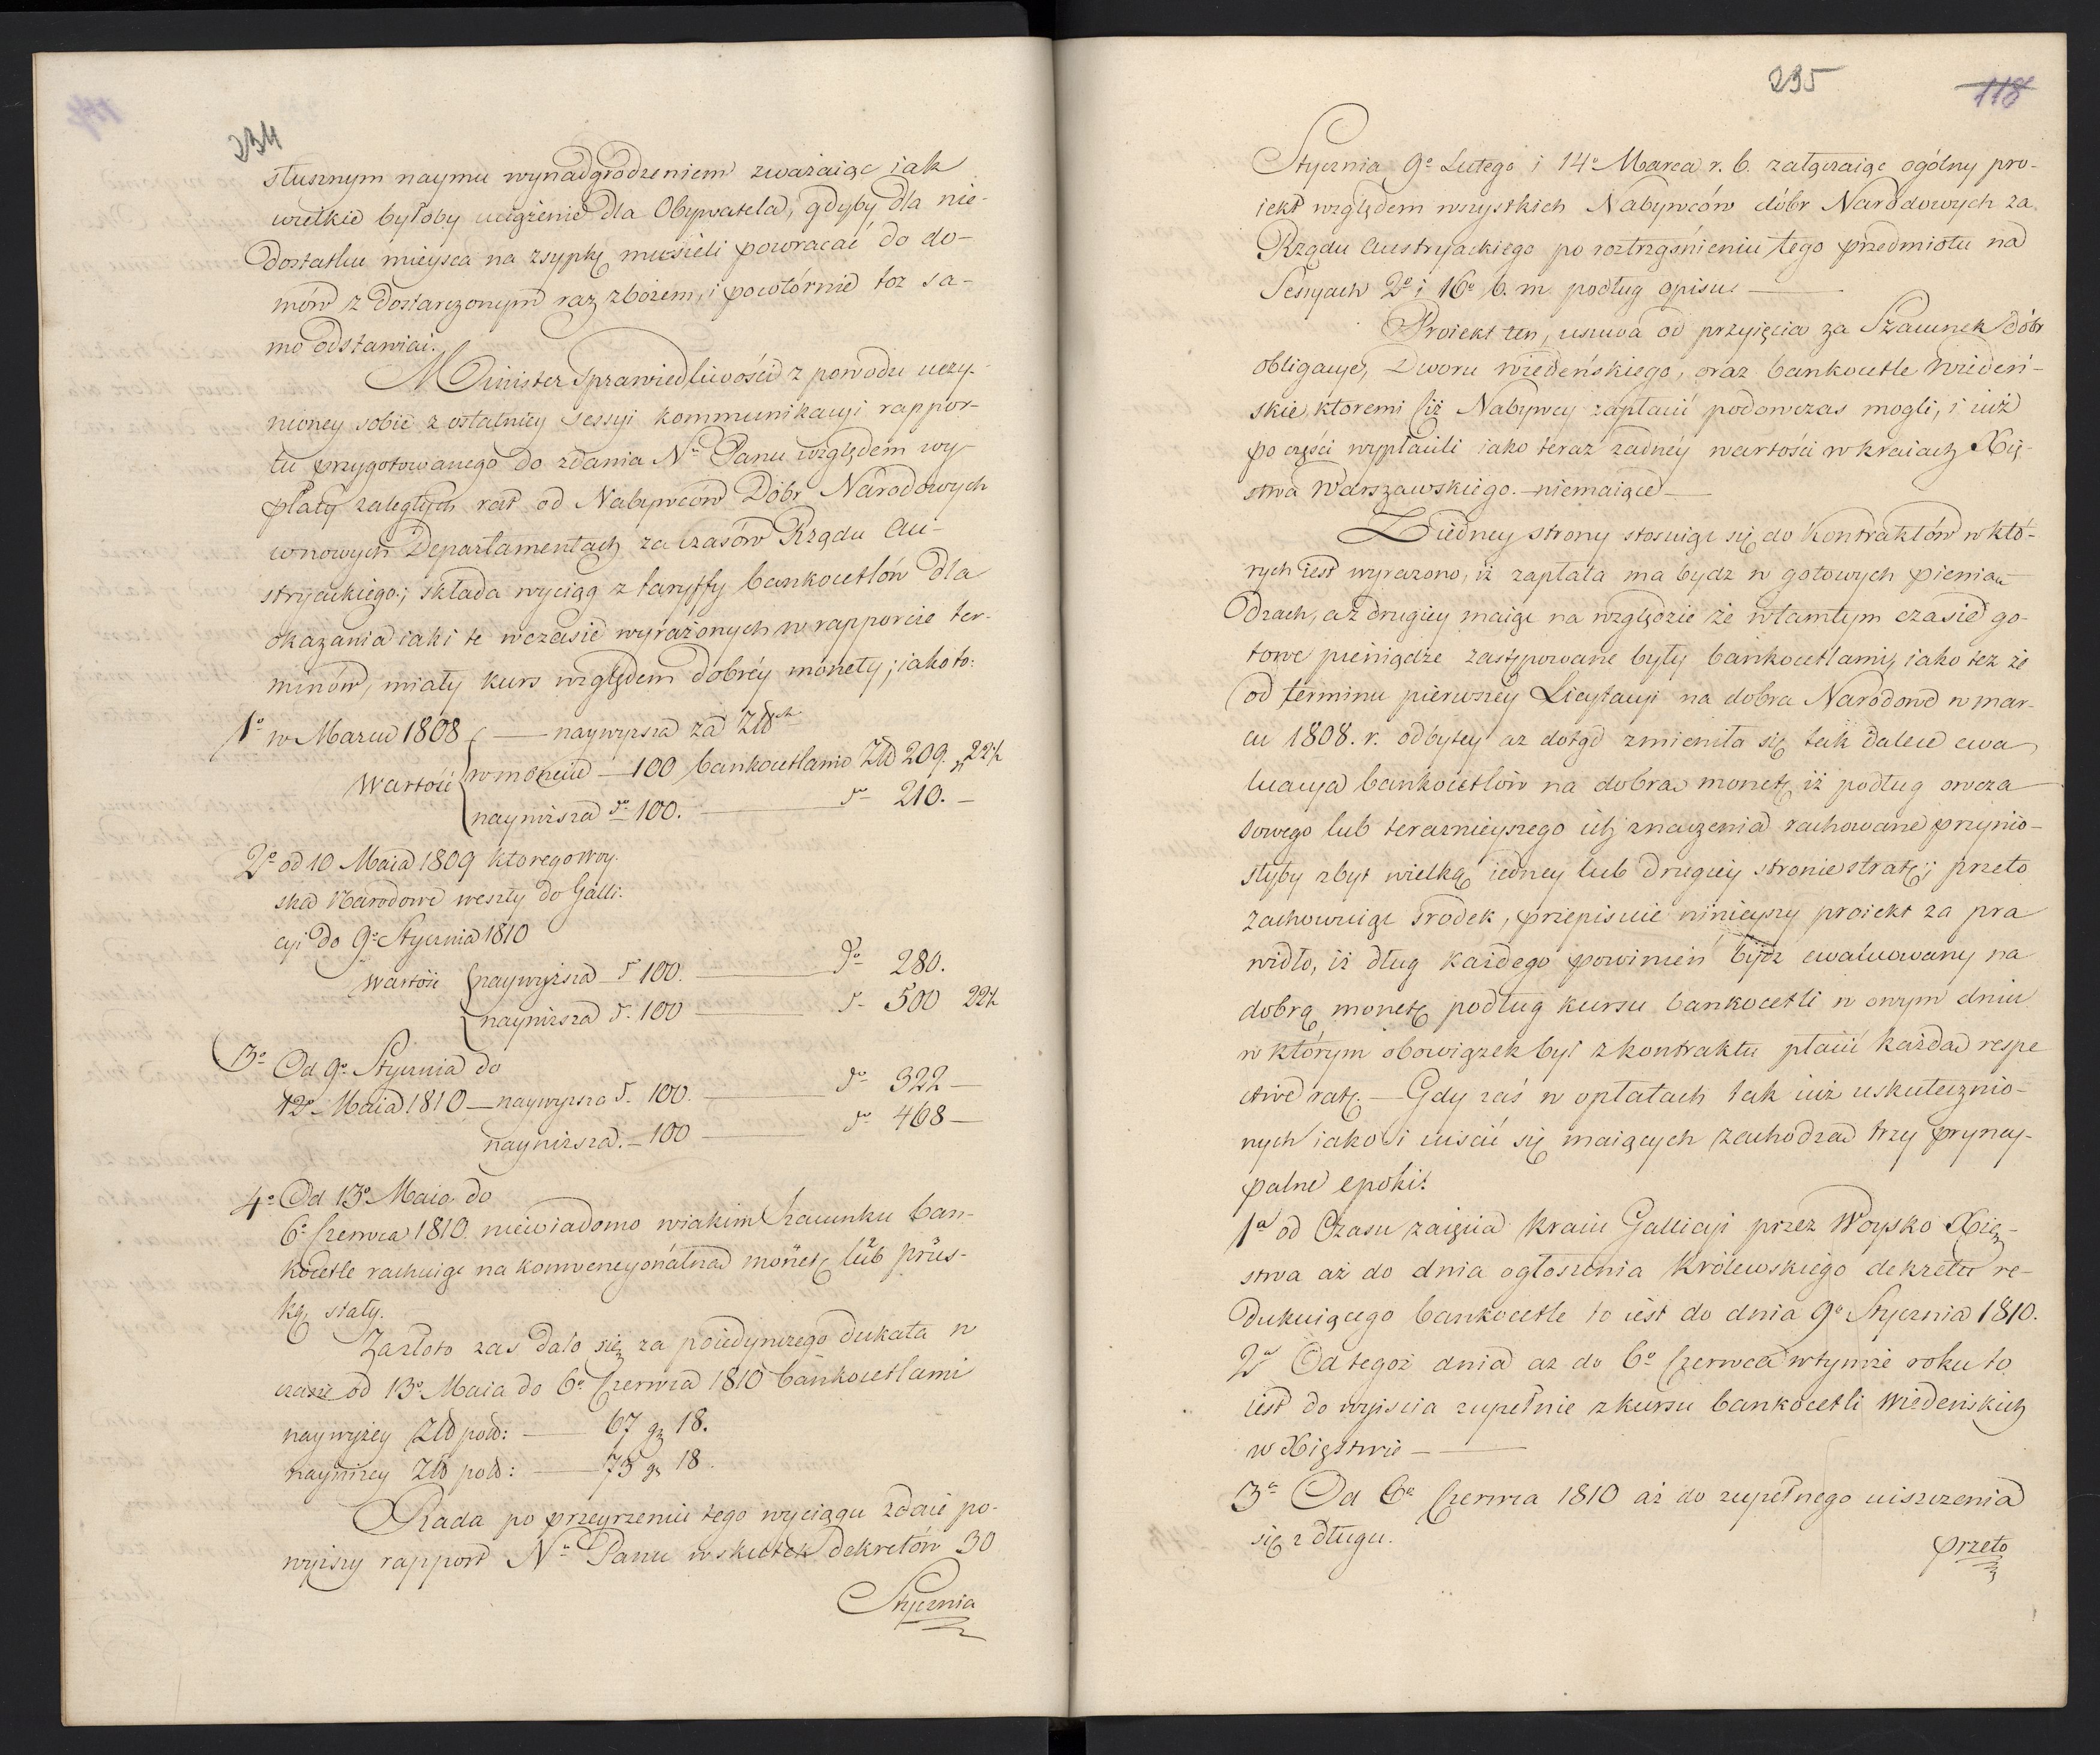 234
słusznym naymu wynadgrodzeniem zważaiąc iak
wielkie byłoby uciążenie dla Obywatela, gdyby dla nie-
dostatku mieysca na zsypkę musieli powracać do do-
mów z dostarczonym raz zbożem, i powtórnie toż sa-
mo odstawiać.
Minister Sprawiedliwości z powodu uczy-
nioney sobie z ostatniey Sessyi kommunikacyi rappor-
tu przygotowanego do zdania Nu Panu względem wy-
płaty zaległych rat od Nabywców Dóbr Narodowych
w nowych Departamentach za czasów Rządu Au-
stryackiego; składa wyciąg z taryffy bankocetlów dla
okazania iaki te w czasie wyrażonych w rapporcie ter-
minów, miały kurs względem dobréy monety; iako to:
1o w Marcu 1808 — naywyższa za Złch
Wartość w monecie — 100 bankocetlami Zł 209. " 22½
nayniższa do 100. — do 210. —
2o od 10 Maia 1809 ktorego woy-
ska Narodowe weszły do Galli-
cyi do 9o Stycznia 1810
Wartość naywyższa do 100. — do 280.
nayniższa do 100 — do 500 22½
3o Od 9o Stycznia do
12o Maia 1810 — naywyższa do 100. — do 322 —
nayniższa. — 100 — do 468 —
4o Od 13o Maia do
6o Czerwca 1810 niewiadomo w iakim szacunku ban-
kocetle rachuiąc na konwencyonalną monetę lub prus-
ką stały.
Za złoto zas dało się za poiedynczego dukata w
czasie od 13o Maia do 6o Czerwca 1810 bankocetlami
naywyżey Zł pol: — 67 gr 18.
nayniżey Zł pol: — 75 gr 18.
Rada po przeyrzeniu tego wyciągu zdaie po-
wyższy rapport Nu Panu w skutek dekretów 30
Stycznia
235
118
Stycznia, 9o Lutego i 14o Marca r. b. załączaiąc ogólny pro-
iekt względem wszystkich Nabywców dóbr Narodowych za
Rządu Austryackiego po roztrząśnieniu tego przedmiotu na
Sessyach 2o i 16o b. m. podług opisu —
Proiekt ten, usuwa od przyięcia za Szacunek dóbr
obligacye, Dworu wiedeńskiego, oraz bankocetle Wiedeń-
skie, ktoremi ciż Nabywcy zapłacić podowczas mogli, i iuż
po części wypłacili iako teraz żadnéy wartości w kraiach Xię-
stwa Warszawskiego. — niemaiące —
Z iedney strony stosuiąc się do Kontraktów w któ-
rych iest wyrażono, iż zapłata ma bydz w gotowych pienią-
dzach, a z drugiey maiąc na względzie że w tamtym czasie go-
towe pieniądze zastępowane były bankocetlami, iako tez że
od terminu pierwszey Licytacyi na dobra Narodowe w mar-
cu 1808. r. odbytey aż dotąd zmieniła się tak dalece ewa-
luacya bankocetlów na dobra monetę, iż podług owcza-
sowego lub teraznieyszego ich znaczenia rachowane przynio-
słyby zbyt wielką iedney lub drugiey stronie stratę; przeto
zachowuiąc środek, przepisuie ninieyszy proiekt za pra
widło, iż dług każdego powinien bydz ewaluowany na
dobrą monetę podług kursu bankocetli w owym dniu
w którym obowiązek był z kontraktu płacić każda respe
ctive ratę. — Gdy zaś w opłatach tak iuż uskutecznio-
nych iako i uiścić się maiących zachodzą trzy pryncy-
palne epoki:
1a od Czasu zaięcia Kraiu Gallicyi przez Woysko Xię-
stwa aż do dnia ogłoszenia Królewskiego dekretu re-
dukuiącego bankocetle to iest do dnia 9o Stycznia 1810.
2a Od tegoż dnia aż do 6o Czerwca w tymże roku to
iest do wyiscia zupełnie z kursu bankocetli Wiedeńskich
w Xięstwie —
3a Od 6o Czerwca 1810 aż do zupełnego uiszczenia
się z długu.
przeto